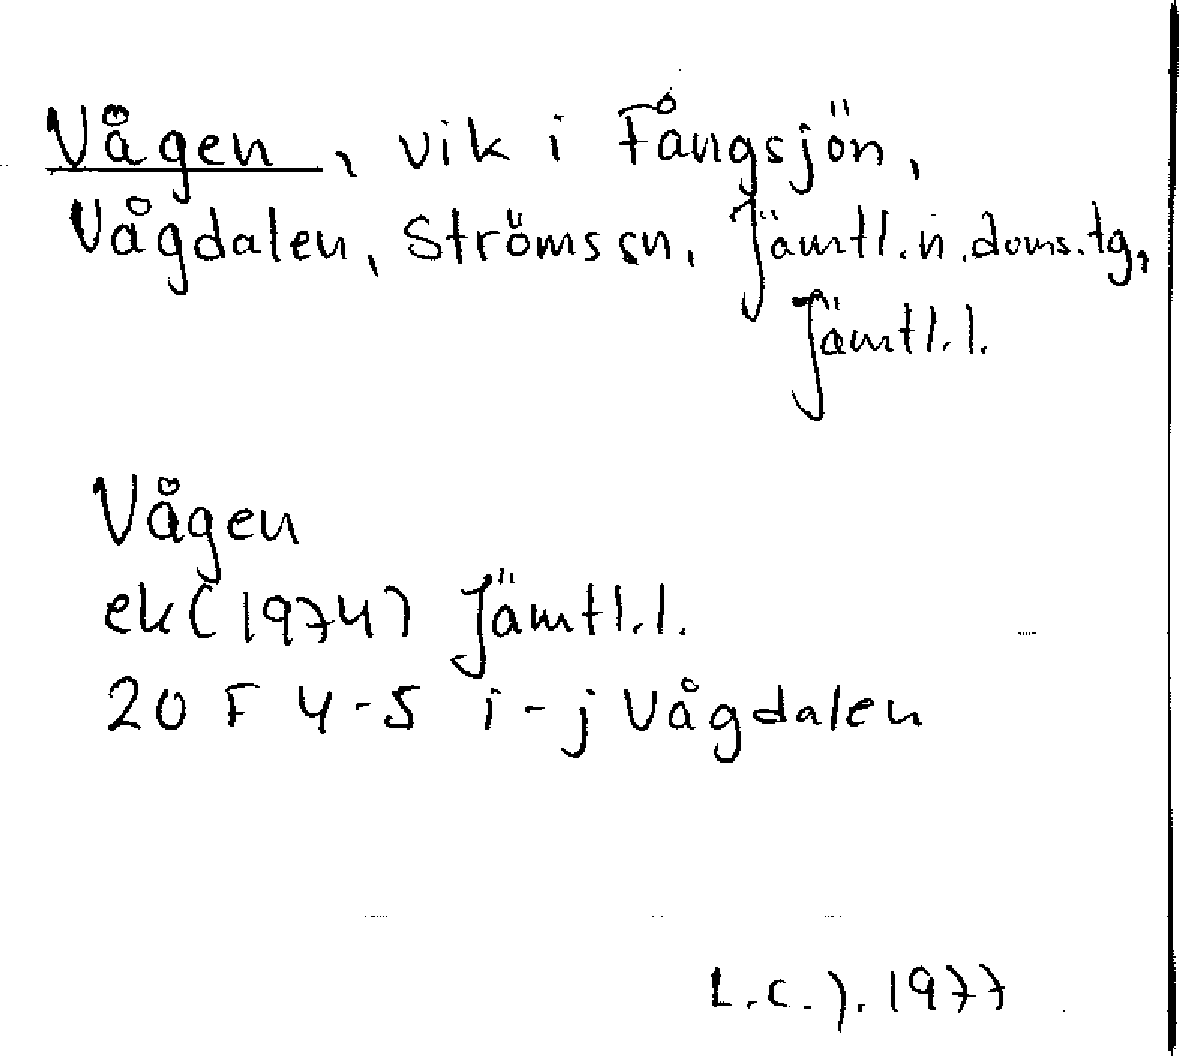 Vågen, vik i Fångsjön,
Vågdalen, Ströms sn, Jämtl.n.doms.tg,
Jämtl.l.
Vågen
ek(1974) Jämtl.l.
20 F 4-5 i-j Vågdalen
L.C.J. 1977